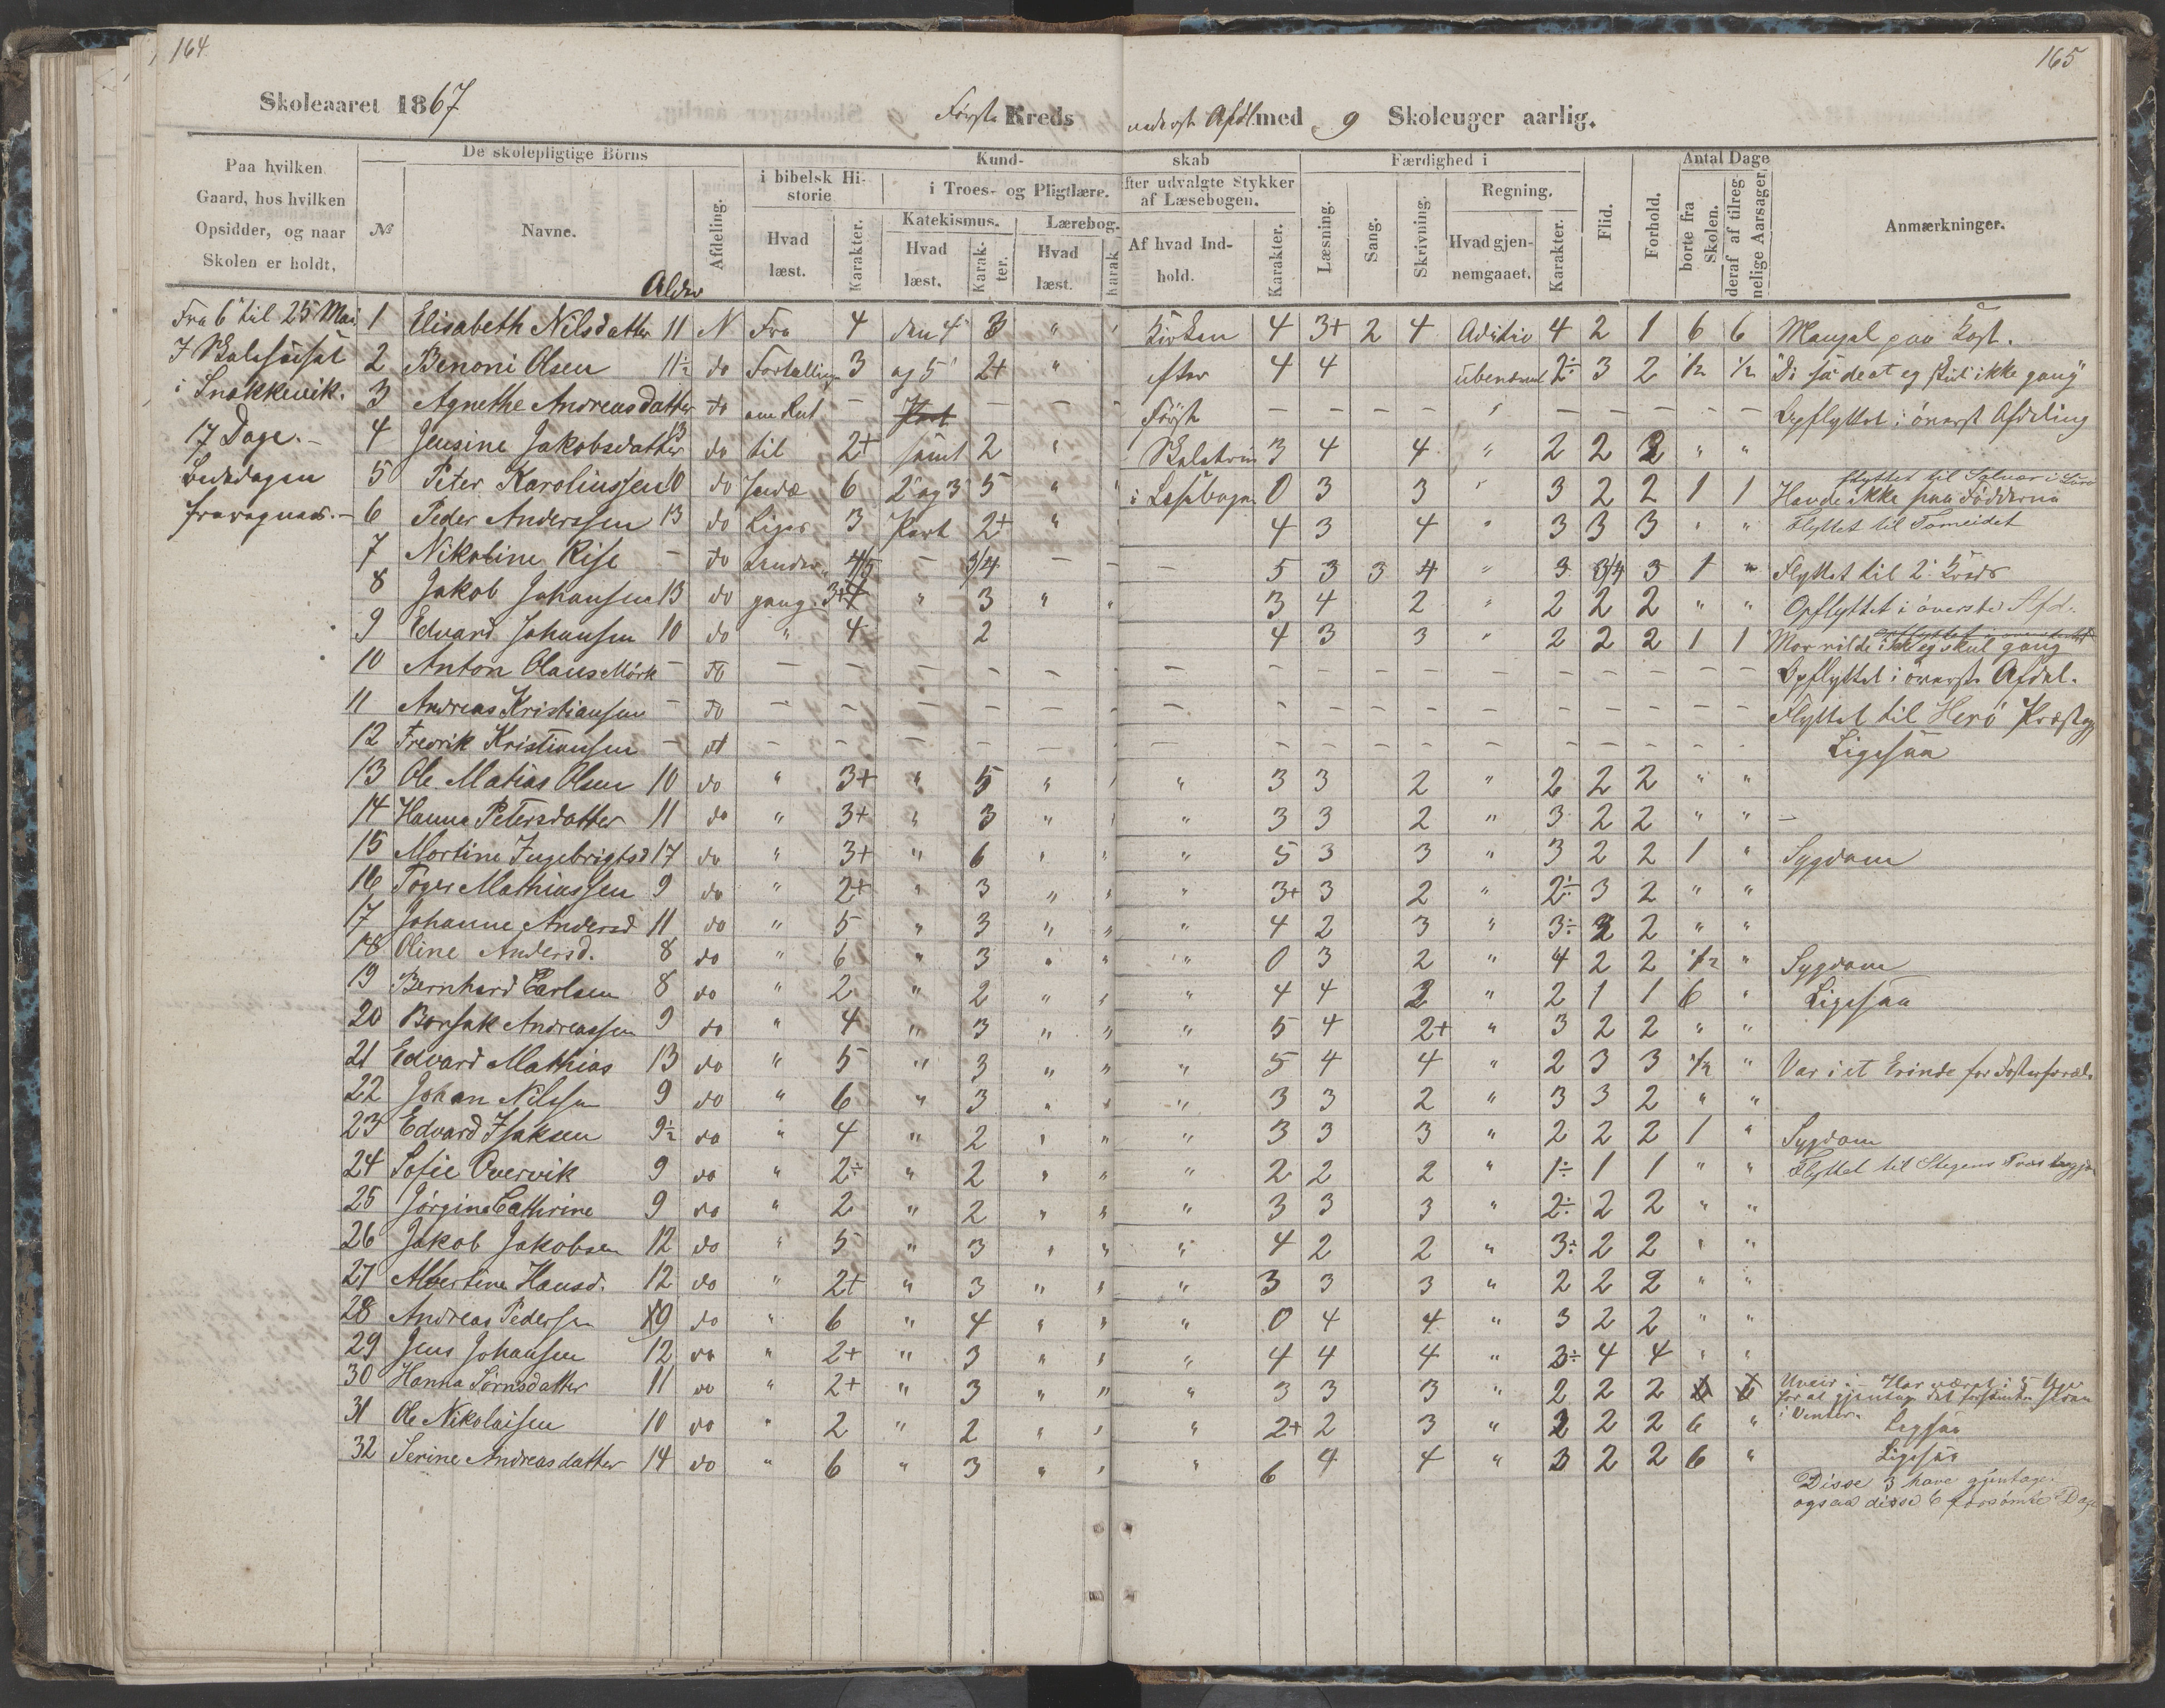 164
165
Skoleaaret 1867 Første Kreds nederste Afdl. med 9 Skoleuger aarlig.
Paa hvilken Gaard, hos hvilken Opsidder, og naar Skolen er holdt,
№
De skolepligtige Börns
Navne. Alder
Afdeling.
Kundskab
i bibelsk Historie
Hvad læst.
Karakter.
i Troes- og Pligtlære.
Katekismus.
Hvad læst.
Karakter.
Lærebog.
Hvad læst.
Karak
fter udvalgte Stykker af Læsebogen.
Af hvad Indhold.
Karakter.
Færdighed i
Læsning.
Sang.
Skrivning.
Regning.
Hvad gjennemgaaet.
Karakter.
Flid.
Forhold.
Antal Dage
borte fra Skolen.
deraf af tilregnelige Aarsager.
Anmærkninger.
Fra 6 til 25 Mai
i Snekkevik.
17 Dage.
Bededagen
fravegnet.
1 Elisabeth Nilsdatter 11 N Fra 4 den 4 3 " Kirken 4 3+ 2 4 Aditio 4 2 1 6 6 Mangel paa Kost.
2 Benoni Olsen 11½ do Fortælling 3 og 5 2+ " efter 4 4 ubenævnt 2÷ 3 2 ½ ½ "Di sa de at eg skul ikke gang"
3 Agnethe Andreasdatter do om Rut — Part — — — Först — — — — — — — — — Opflyttet i överst Afdeling
4 Jensine Jakobsdatter 13 do til 2+ samt 2 " 3 4 4 " 2 2 2 " "
5 Peter Karoliussen 10 do Judæ 6 2 og 3 5 " " i Læsebogen 0 3 3 " 3 2 2 1 1 Havde ikke paa Födderne flyttet til
6 Peder Anderssen 13 do Riges 3 Part 2+ " 4 3 4 " 3 3 3 " " Flyttet til Tomeidet
7 Nikoline Rise — do Under 4/5 — 3/4 — — — 5 3 3 4 " 3 3/4 3 1 " Flyttet til 2 Kreds
8 Jakob Johansen 13 do gang. 3+ " 3 " " 3 4 2 " 2 2 2 " " Opflyttet i överste Afd.
9 Edvard Johansen 10 do " 4 2 4 3 3 " 2 2 2 1 1 Mor vilde ikke eg skul gang
10 Anton Olaus Mörk — do — — — — — — — — — — — — — — — — Opflyttet i överste Afdel.
11 Andreas Kristiansen — do — — — — — — — — — — — — — — — — Flyttet til Herö Præstegj
12 Fredrik Kristiansen — do — — — — — — — — — — — — — — — Ligesaa
13 Ole Matias Olsen 10 do " 3+ " 5 " " " 3 3 2 " 2 2 2 " "
14 Hanna Petersdatter 11 do " 3+ " 3 " " " 3 3 2 " 3 2 2 " " —
15 Mortine Ingebrigtsd 17 do " 3+ " 6 " " " 5 3 3 " 3 2 2 1 " Sygdom
16 Toger Mathiassen 9 do " 2+ " 3 " " " 3+ 3 2 " 2÷ 3 2 " "
17 Johanne Andersd 11 do " 5 " 3 " " " 4 2 3 " 3÷ 2 2 " "
18 Oline Andersd. 8 do " 6 " 3 " " " 0 3 2 " 4 2 2 ½ " Sygdom
19 Bernhard Carlsen 8 do " 2 " 2 " " " 4 4 2 " 2 1 1 6 " Ligesaa
20 Andreassen 9 do " 4 " 3 " " " 5 4 2+ " 3 2 2 " "
21 Edvard Mathias 13 do " 5 " 3 " " " 5 4 4 " 2 3 3 ½ " Var i et Erinde for Fosterforæld.
22 Johan Nilssen 9 do " 6 " 3 " " " 3 3 2 " 3 3 2 " "
23 Edvard Isaksen 9½ do " 4 " 2 " " " 3 3 3 " 2 2 2 1 " Sygdom
24 Sofie Overvik 9 do " 2÷ " 2 " " " 2 2 2 " 1÷ 1 1 " " Flyttet til Stegens
25 Jörgine Cathrine 9 do " 2 " 2 " " " 3 3 3 " 2÷ 2 2 " "
26 Jakob Jakobsen 12 do " 5 " 3 " " " 4 2 2 " 3÷ 2 2 " "
27 Albertine Hansd. 12 do " 2+ " 3 " " " 3 3 3 " 2 2 2 " "
28 Andreas Pedersen 9 do " 6 " 4 " " " 0 4 4 " 3 2 2 " "
29 Jens Johansen 12 do " 2+ " 3 " " " 4 4 4 " 3÷ 4 4 " "
30 Hanna Sörnsdatter 11 do " 2+ " 3 " " " 3 3 3 " 2 2 2 6 6 Uveir i — Har været i 5 Uger
for at gjentage det forsömte
i Vinter.
31 Ole Nikolaisen 10 do " 2 " 2 " " " 2+ 2 3 " 2 2 2 6 " Ligesaa
32 Serine Andreasdatter 14 do " 6 " 3 " " " 6 4 4 " 3 2 2 6 " Ligesaa
Disse 3 have gjentaget
ogsaa disse 6 forsömte Dage